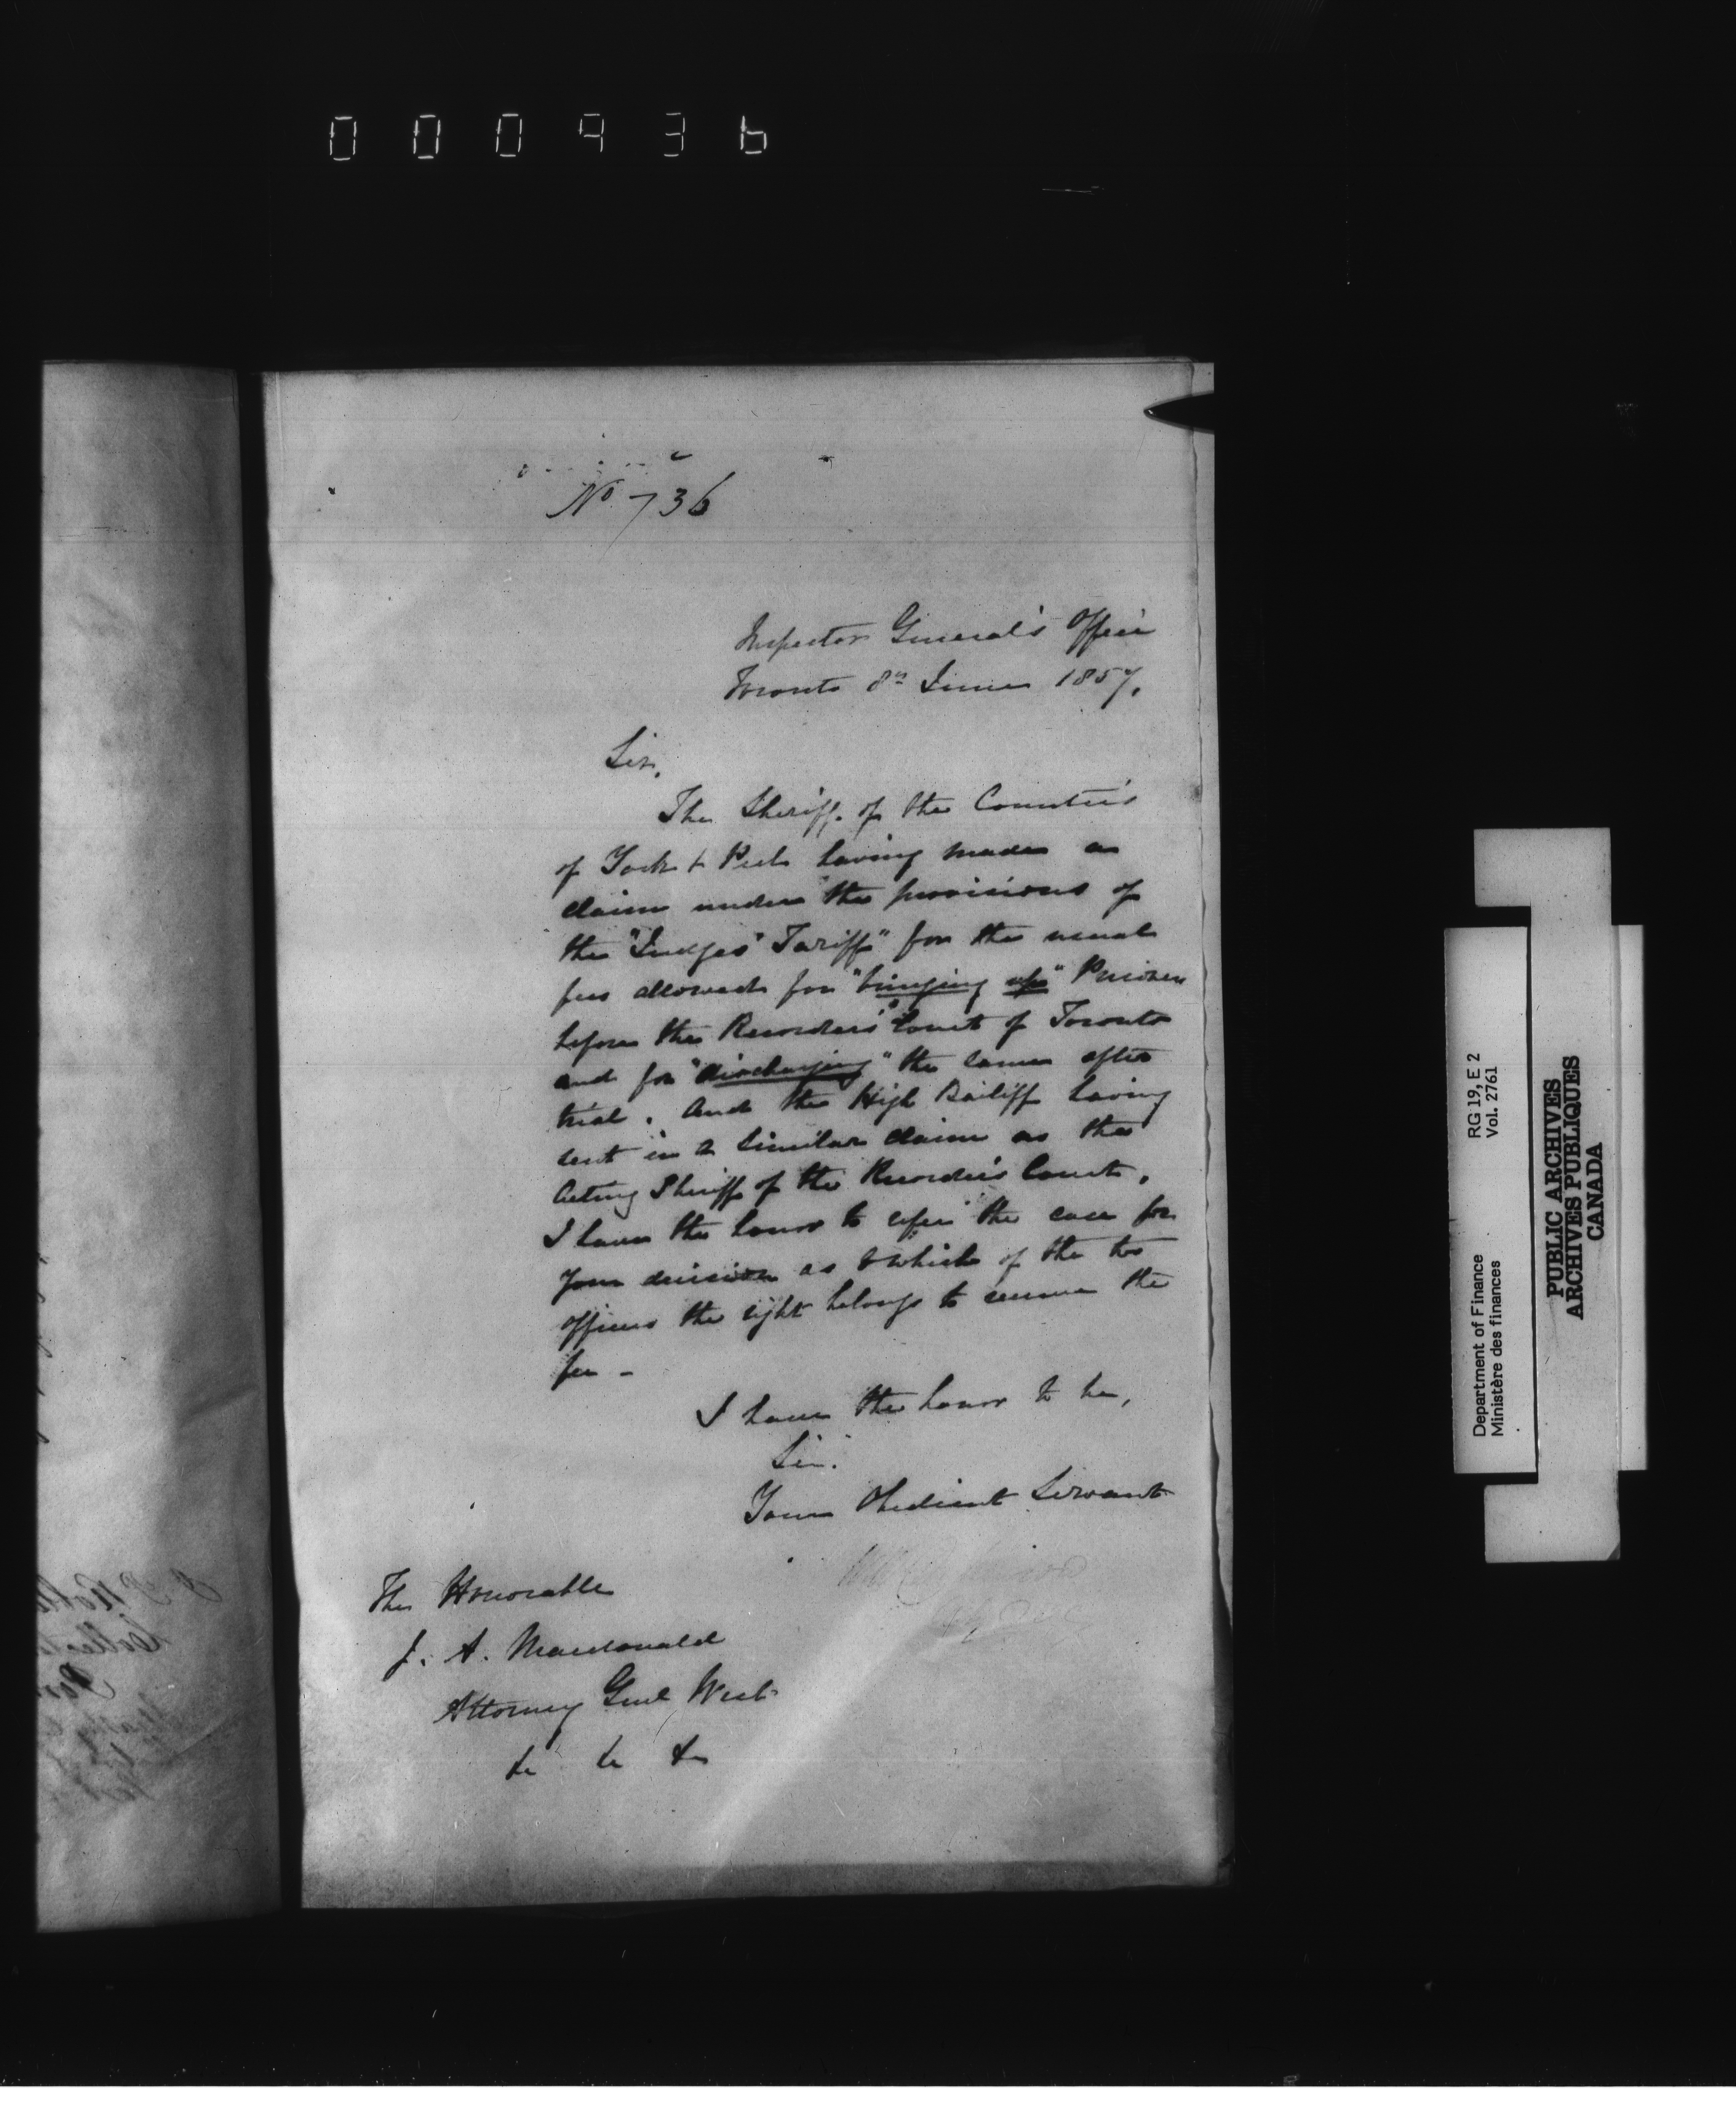 000936
No 736
Inspector General's Office
Toronto 8th June 1857.
Sir,
The Sheriff of the Counties
of York & Peel having made a
claim under the provisions of
the "Judges' Tariff" for the usual
fees allowed for "bringing up" Prisoners
before the Recorders' Court of Toronto
and for "discharging" the same after
trial. And the High Bailiff having
sent in a similar claim as the
Acting Sheriff of the Recorder's Court,
I have the honor to refer the case for
your decision as to which of the two
officers the right belongs to receive the
fee -
I have the honor to be,
Sir.
Your Obedient Servant
The Honorable
J. A. Macdonald
Attorney Genl West
&c &c &c
Department of Finance RG 19, E 2
Ministère des finances Vol. 2761
PUBLIC ARCHIVES
ARCHIVES PUBLIQUES
CANADA